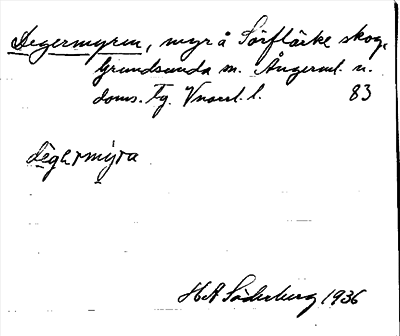 Degermyren, myr å Sörflärke skog,
Grundsunda sn. Ångerml. n.
doms. tg. Vnorrl. l. 83
degermyra
HA Söderberg 1936